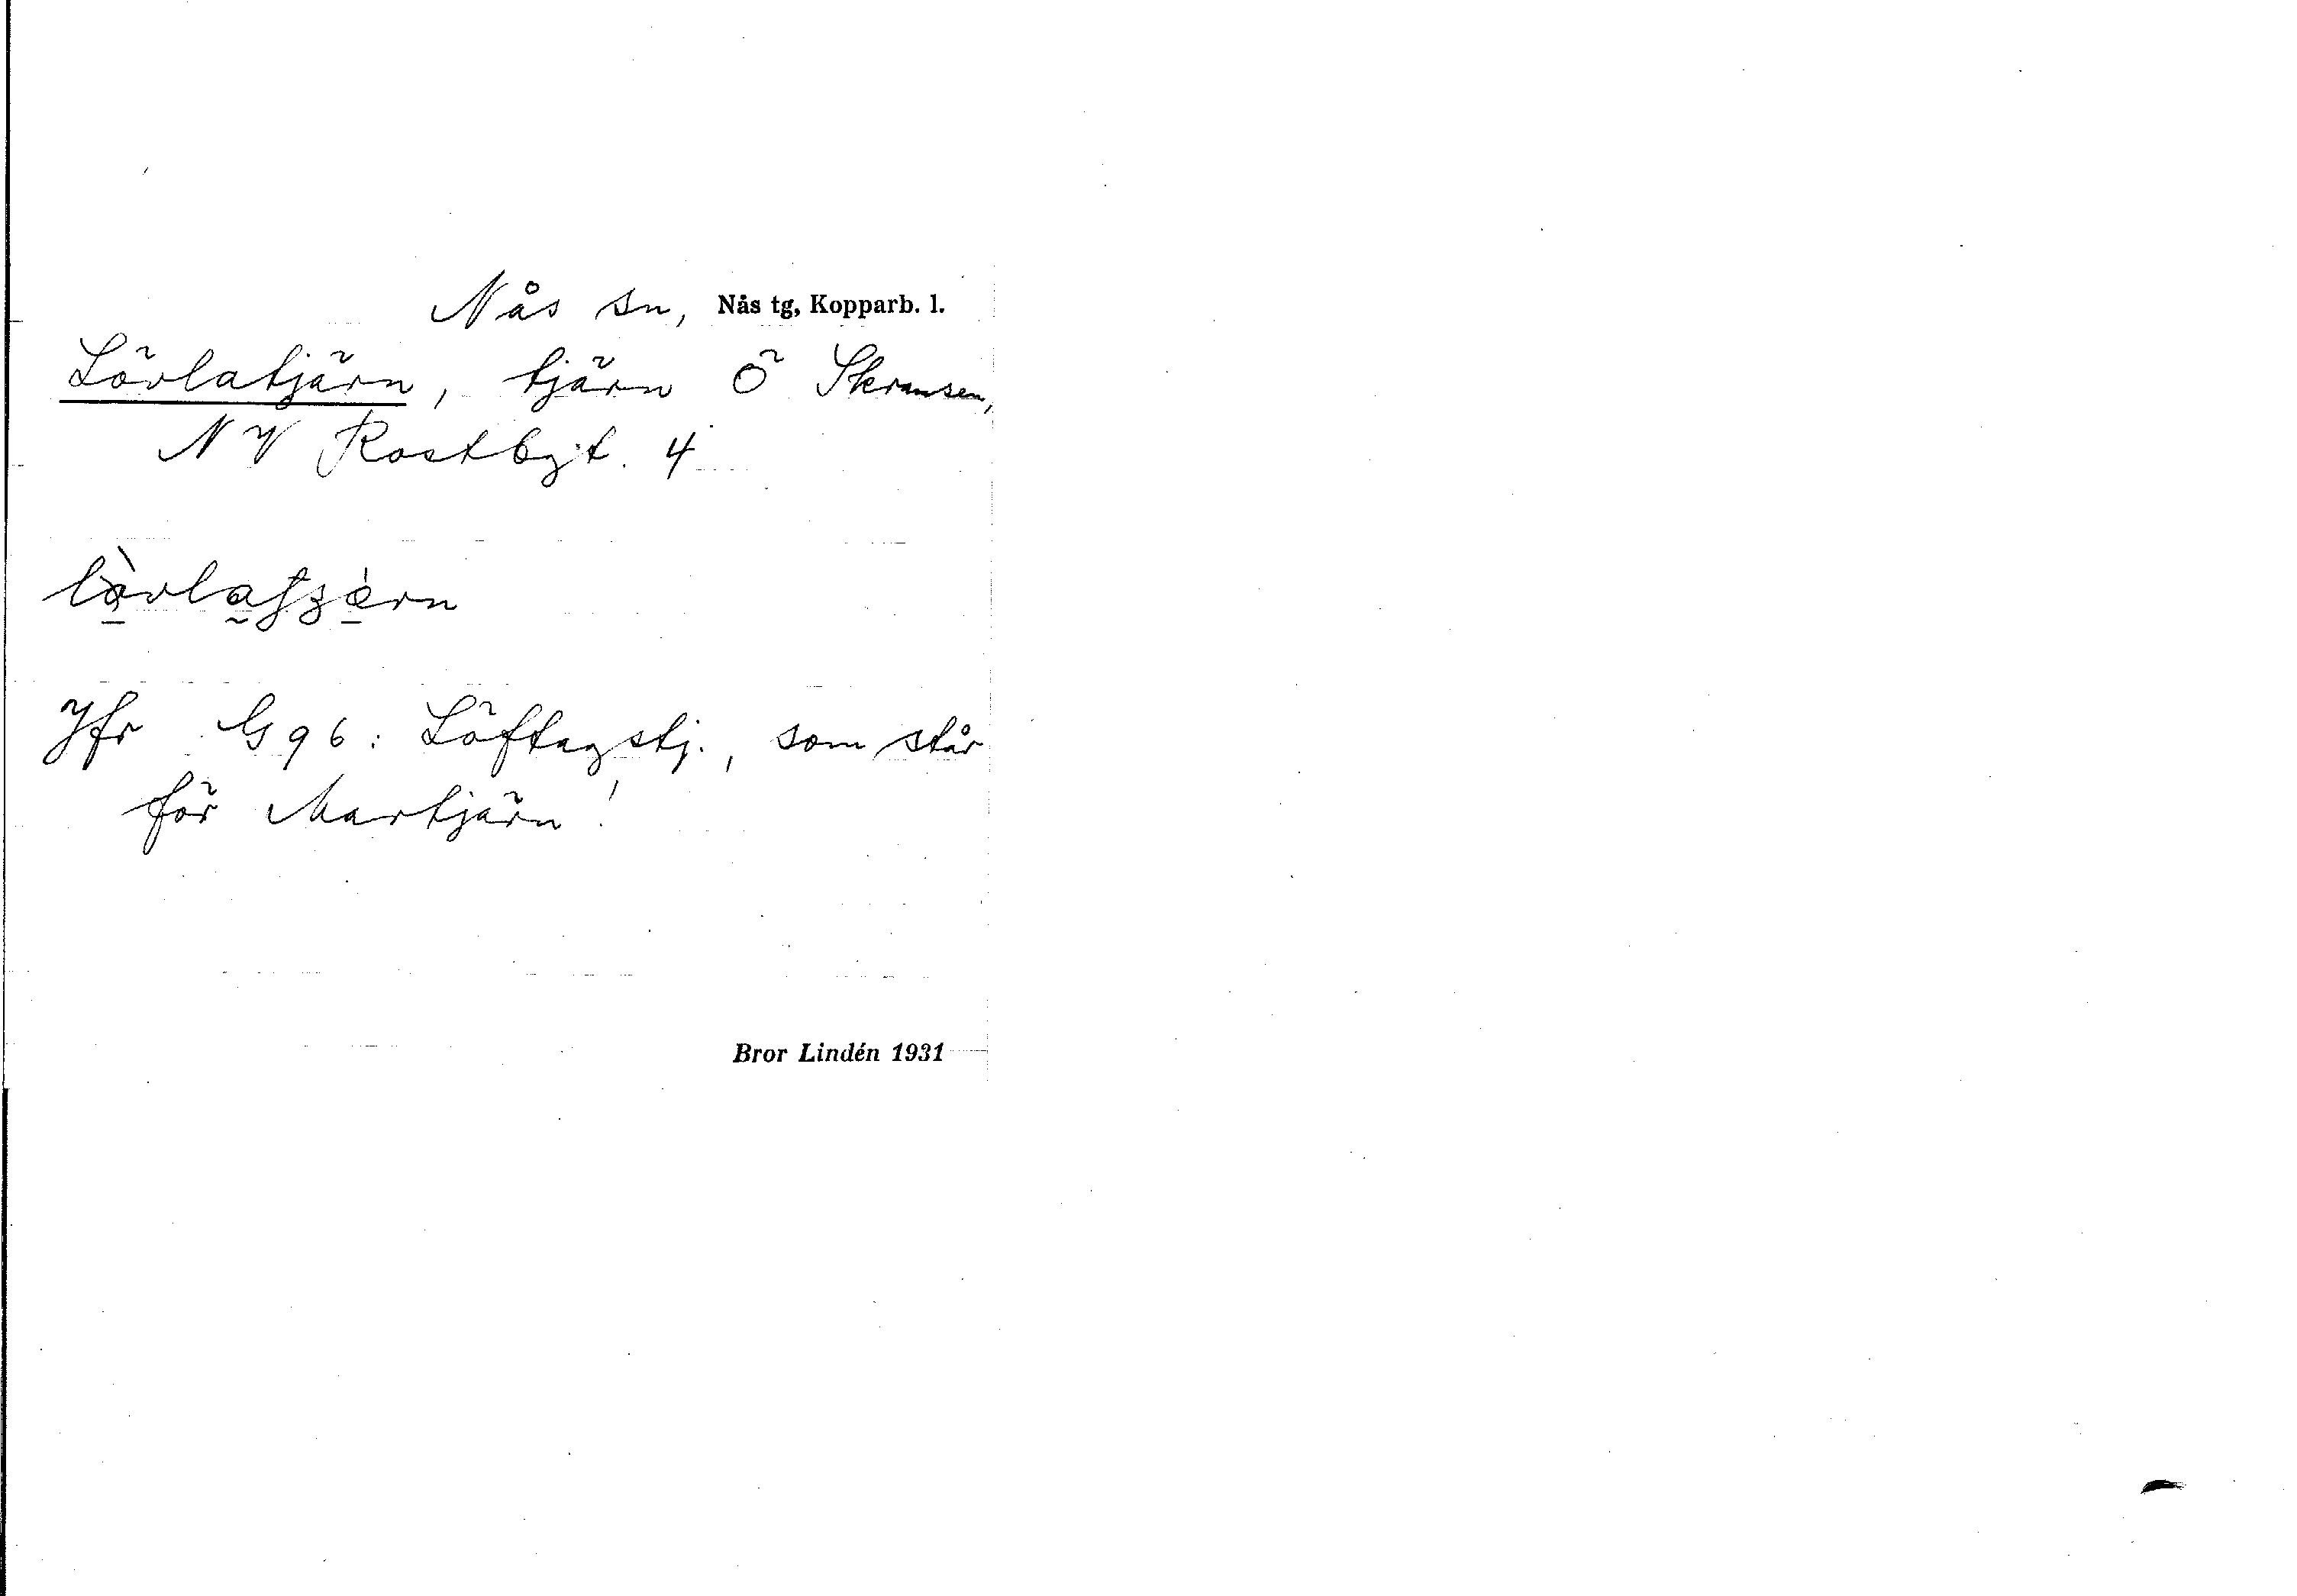 Nås sn, Nås tg, Kopparb. l.
Lövlatjärn, tjärn Ö Skransen,
NV Rostbgt. 4
Jfr G96: Löftagstj., som står
för Martjärn!
Bror Lindén 1931